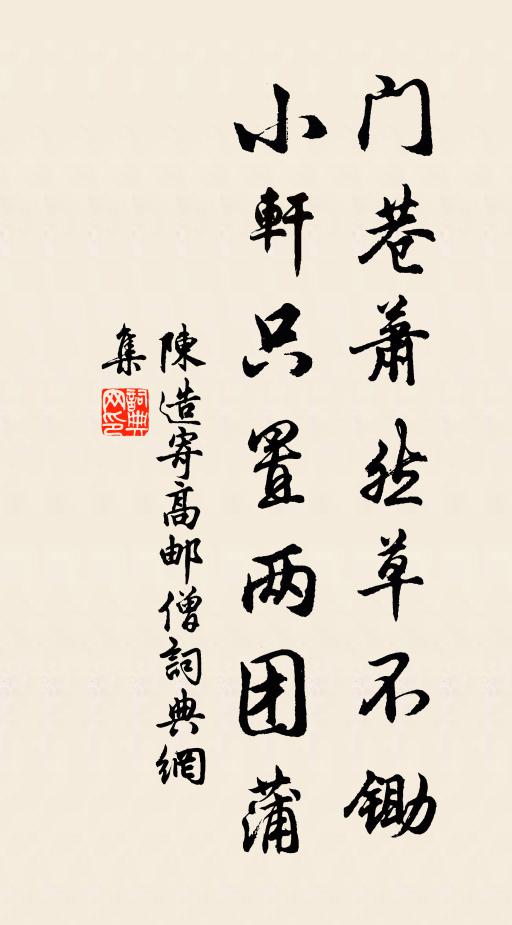 门巷萧然草不锄
小軒只置两团蒲
陳造寄高邮僧詞典網
集
詞典
网印